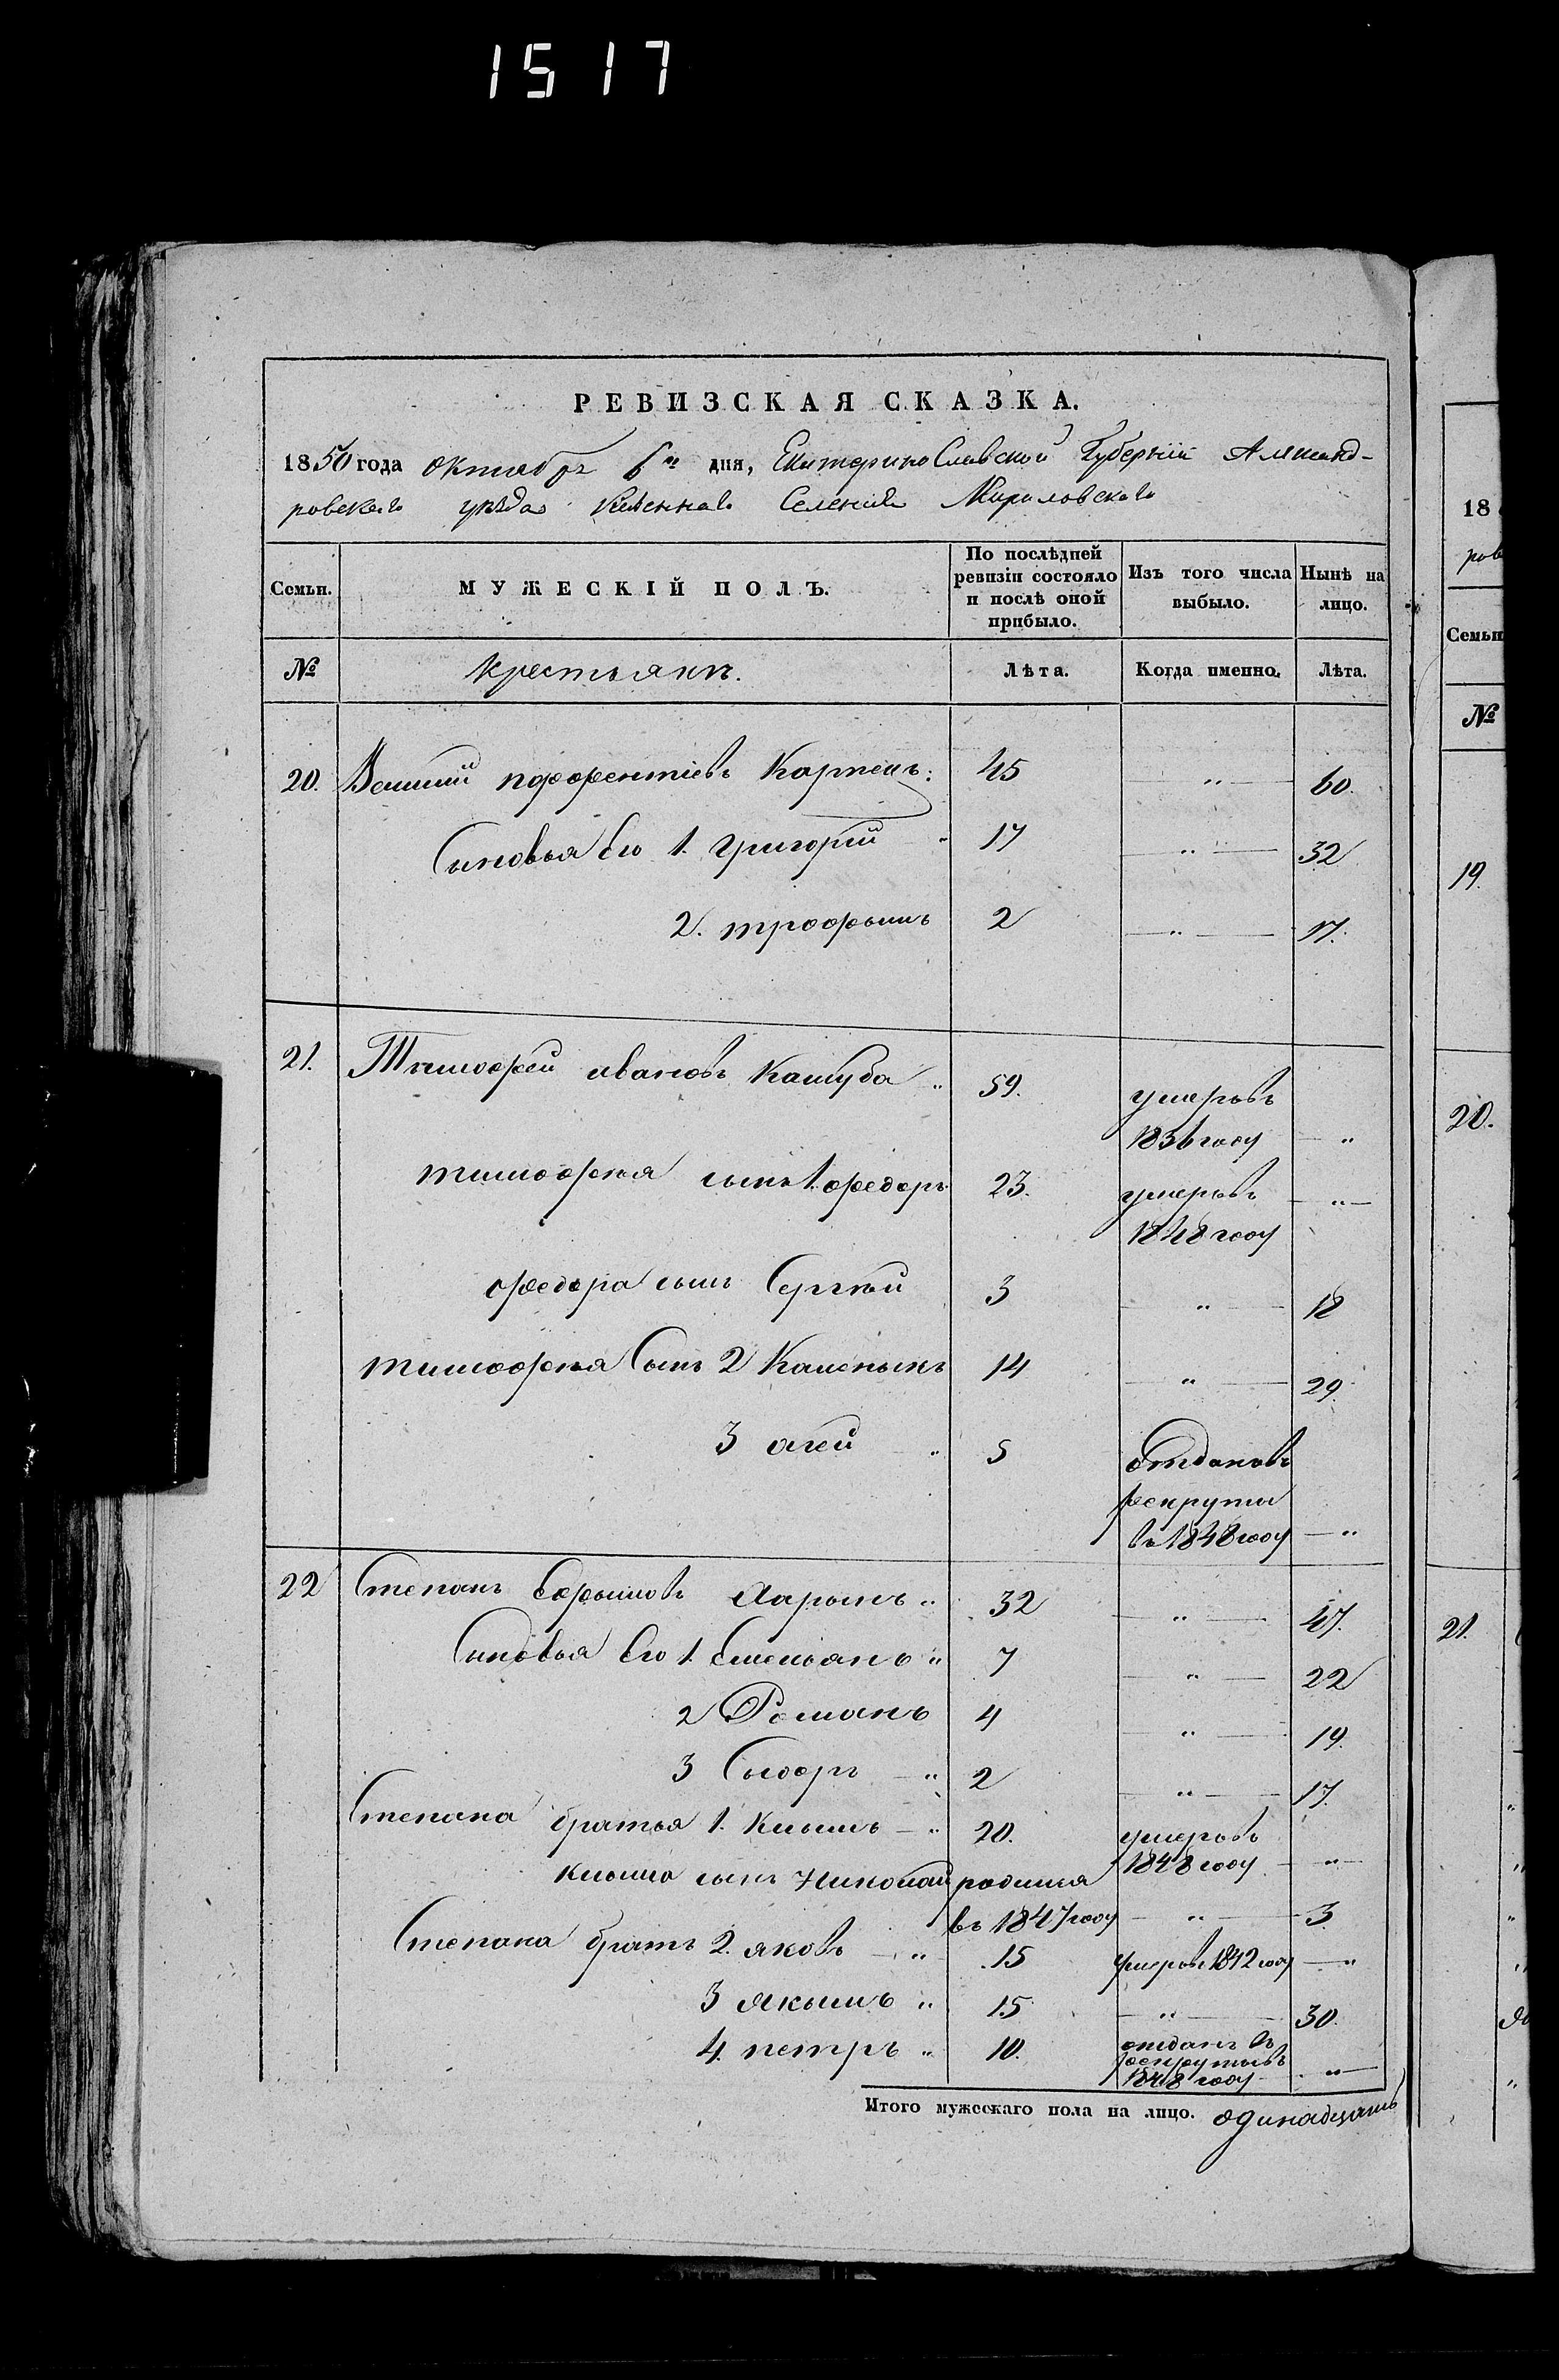 1517
РЕВИЗСКАЯ СКАЗКА.
1850 года октября 6го дня, Екатеринославской Губернiи Александ-
ровскаго уѣзда Казеннаго Селенiя
Семьи. МУЖЕСКIЙ ПОЛЪ. По послѣдней ревизiи состояло и послѣ оной прибыло. Изъ того числа выбыло. Нынѣ на лицо.
№ крестьянъ. Лѣта. Когда именно. Лѣта.
20. 45 " 60.
Синовья Его 1. Григорiй " 17 " 32
2. трофымъ 2 " 17.
21. Тымофей ивановъ Кашуба " 59. умеръ въ
1836 году "
тимофея сынъ 1. федоръ 23. умеръ въ "
1848 году
федора сынъ Сергѣй 3 " 18
тимофея Сынъ 2 14 " 29.
3 агей " 5 Отданъ въ
рекруты
въ 1848 году "
22 Степанъ Ефымовъ " 32 " 47.
Синовья Его 1. Емельянъ " 7 " 22
2 Романъ 4 " 19.
3 Сыдоръ " 2 " 17.
Степана братья 1. Климъ " 20. умеръ въ
1848 году "
Клима сынъ Николай родился
въ 1847 году " 3
Степана братъ 2. яковъ " 15 умеръ въ 1842 году "
3 Якымъ " 15 " 30.
4. петръ " 10. отданъ въ
рекруты въ
1848 году "
Итого мужескаго пола на лицо. одинадцать
18
ров
Семьи
№
19.
20.
21.